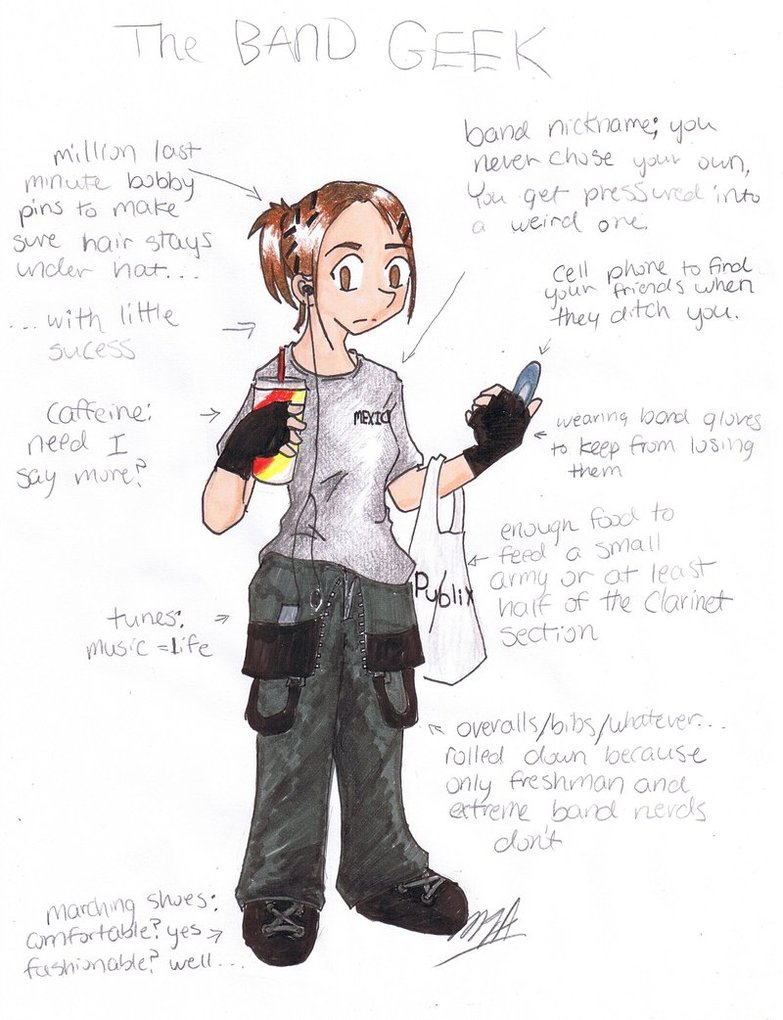 The BAND GEEK
million last
minute bobby
pins to make
sure hair stays
under hat...
...with little
sucess
caffeine:
need I
say more?
tunes:
music = life
marching shoes:
comfortable? yes
fashionable? well...
band nickname; you
never chose your own,
You get pressured into
a weird one.
cell phone to find
your friends when
they ditch you.
wearing band gloves
to keep from losing
them
enough food to
feed a small
army or at least
half of the clarinet
section
overalls/bibs/whatever...
rolled down because
only freshman and
extreme band nerds
don't
MEXICO
Publix